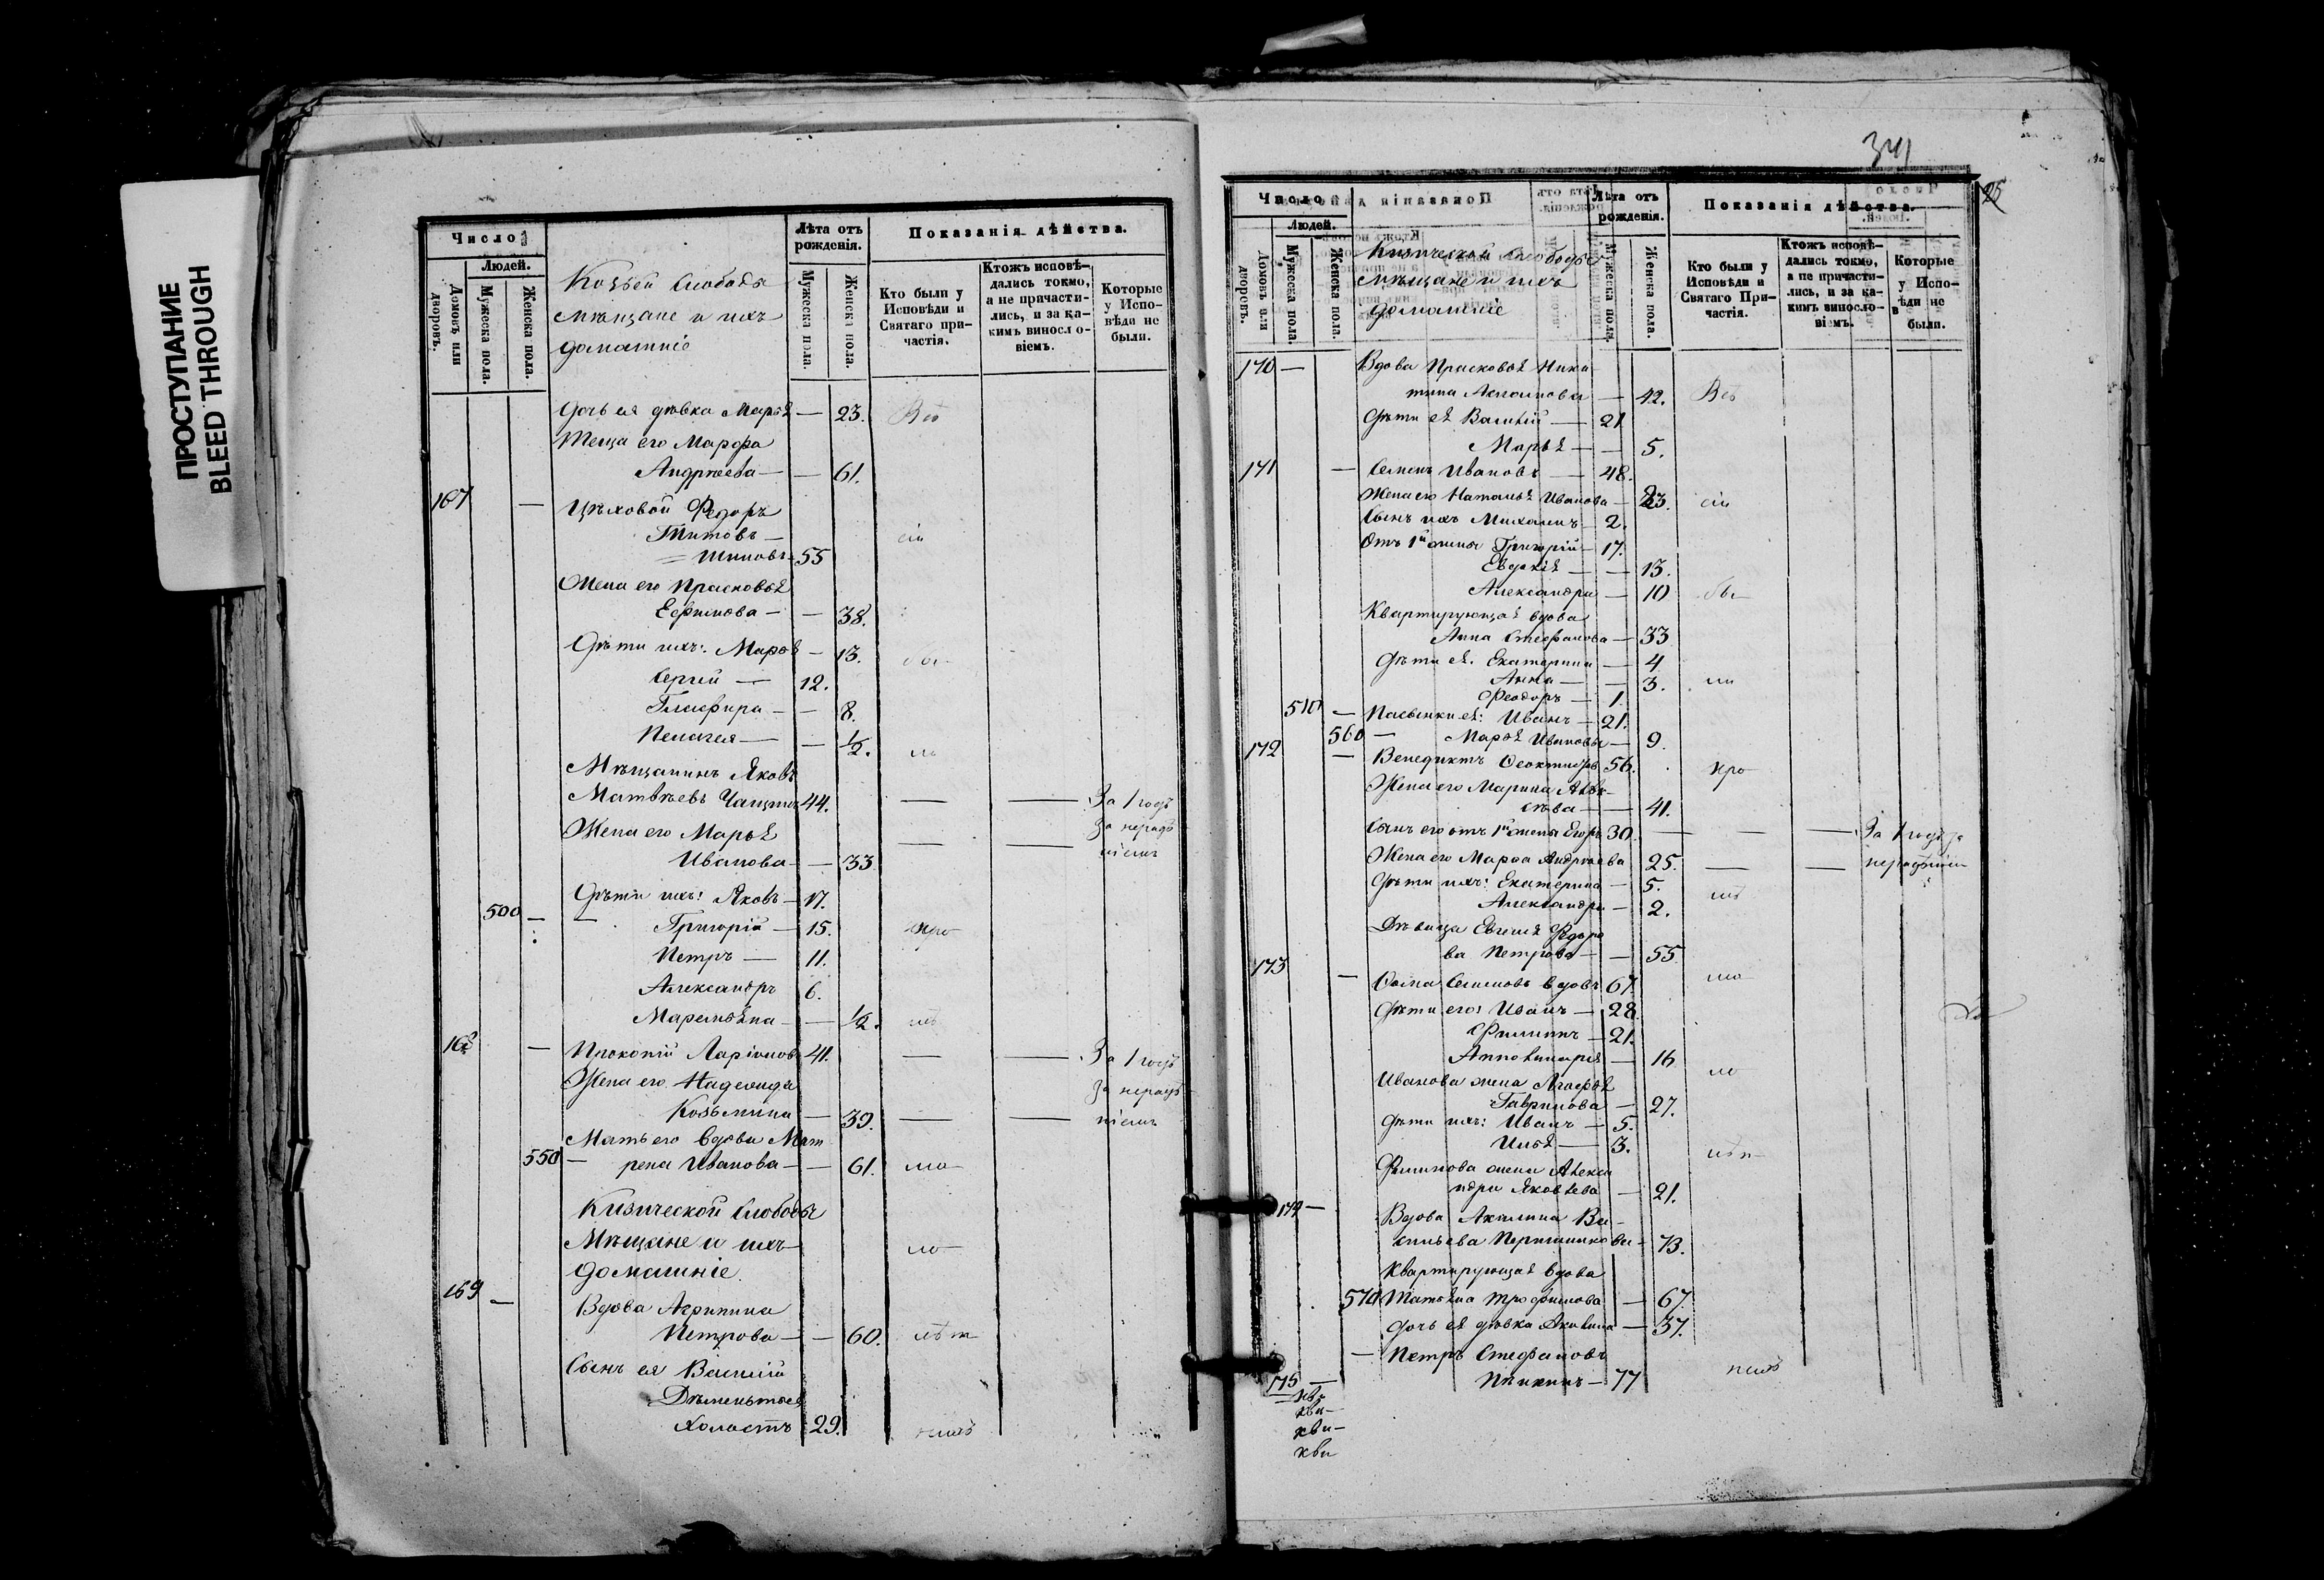 ПРОСТУПАНИЕ
BLEED THROUGH
Число
Людей.
Домовъ или дворовъ.
Мужеска пола.
Женска пола.
Козьей Слободы
мѣщане и ихъ
домашніе
Лѣта отъ рожденія.
Мужеска пола.
Женска пола.
Показанія дѣйства.
Кто были у Исповѣди и Святаго причастія.
Ктожъ исповѣдались токмо, а не причастились, и за какимъ винословіемъ.
Которые у Исповѣди не были.
Дочь ея дѣвка Марья — 23. Всѣ
Теща его Марфа
Андреева — — 61.
167 — Цѣховой Федоръ
Титовъ — сіи
Шиповъ 55
Жена его Прасковья
Ефимова — — 38.
Дѣти ихъ: Марья — 13. бы
Сергій — 12.
Глафира — — 8.
Пелагея — — 1/2. ли
Мѣщанинъ Яковъ
Матвѣевъ 44. — — За 1 годъ
Жена его Марья за нерадѣ
Ивановa — — 33 — — ніемъ
Дѣти ихъ: Яковъ — 17.
500 — Григорій — 15. при
Петръ — 11.
Александръ 6.
Маремьяна — — 1/2.
168 — Прокопій Ларіонов 41. — — За 1 годъ
Жена его за нерадѣ
Козьмина — 39. — — ніемъ
Мать его вдова Мат
550 — рена Иванова — — 61.
Кизической Слободы
Мѣщане и ихъ
домашніе.
169 — Вдова Агрипина
Петрова — — 60.
Сынъ ея Василій
Дѣментьевъ
холостъ 29.
341
25
Число
Людей.
Домовъ или дворовъ.
Мужеска пола.
Женска пола.
Кизической Слободы
мѣщане и ихъ
домашніе
Лѣта отъ рожденія.
Мужеска пола.
Женска пола.
Показанія дѣйства.
Кто были у Исповѣди и Святаго Причастія.
Ктожъ исповѣдались токмо, а не причастились, и за какимъ винословіемъ.
Которые у Исповѣди не были.
170 — Вдова Прасковья Ники
тина — 42. Всѣ
Дѣти ея Василій — 21
Марья — — 5.
171 — Семенъ Ивановъ — 48.
Жена его Наталья Иванова — 23. сіи
Сынъ ихъ Михаилъ — 2.
Отъ 1й жены Григорій — 17.
Евдокія — — 13.
Александра — 10 бы
Квартирующая вдова
Анна Стефанова — 33
Дѣти ея. Екатерина — 4
Анна — — 3. ли
Феодоръ — 1.
510 — Пасынки ея: Иванъ — 21.
560 — Марья Иванова — 9.
172 — Венедиктъ 56. при
Жена его Марина Алек
сѣева — — 41.
Сынъ его отъ 1й жены Егоръ 30. — — — За 1 годъ за
Жена его Марѳа Андреева 25. — — нерадѣніем
Дѣти ихъ: Екатерина — 5.
Александра — 2.
Дѣвица Евгенія Федоро
ва Петрова — — 55
173 — Ѳома Семеновъ вдовъ 67.
Дѣти его: Иванъ — 28.
Филиппъ — 21.
Апполинарія — 16
Иванова жена Агафья
Гаврилова — 27.
Дѣти ихъ: Иванъ — 5.
Илья — 3.
Филипова жена Алекса
ндра Яковлева — 21.
174 — Вдова Акилина Ва
сильева — 73.
Квартирующая вдова
570 Татьяна Трофимова — 67.
Дочь ея дѣвка Акилина — 37.
— Петръ Стефановъ
175 — 77